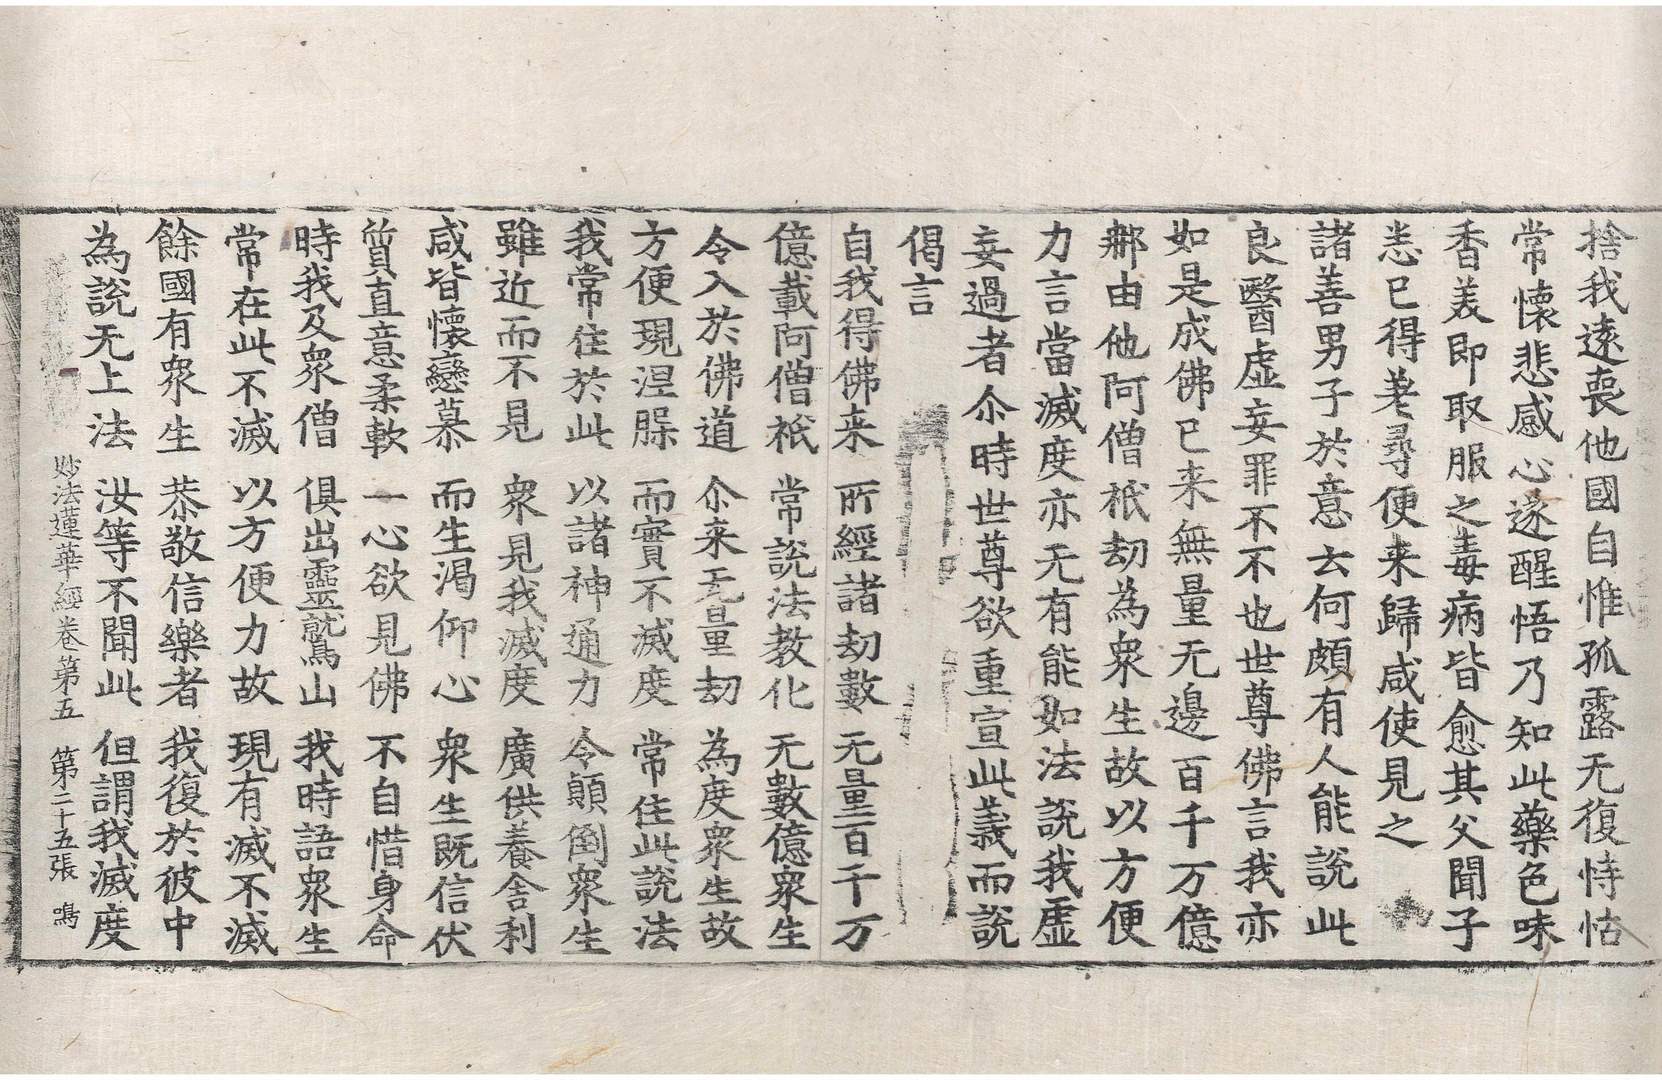 捨我逺喪他國自惟孤露无復恃怙
常懷悲感心遂醒悟乃知此藥色味
香羙即取服之毒病皆愈其父聞子
悉已得差尋便来歸咸使見之
諸善男子於意云何頗有人能說此
良醫虛妄罪不不也世尊佛言我亦
如是成佛已来無量无邊百千万億
那由他阿僧祇劫為衆生故以方便
力言當滅度亦无有能如法說我虛
妄過者尒時世尊欲重宣此義而說
偈言
自我得佛来 所經諸劫數 无量百千万
億載阿僧祇 常說法教化 无數億衆生
令入於佛道 尒来无量劫 為度衆生故
方便現涅槃 而實不滅度 常住此說法
我常住於此 以諸神通力 令顛倒衆生
雖近而不見 衆見我滅度 廣供養舍利
咸皆懷戀慕 而生渴仰心 衆生既信伏
質直意柔軟 一心欲見佛 不自惜身命
時我及衆僧 俱出靈鷲山 我時語衆生
常在此不滅 以方便力故 現有滅不滅
餘國有衆生 恭敬信樂者 我復於彼中
為說无上法 汝等不聞此 但謂我滅度
妙法蓮華經卷第五 第二十五張 鳴